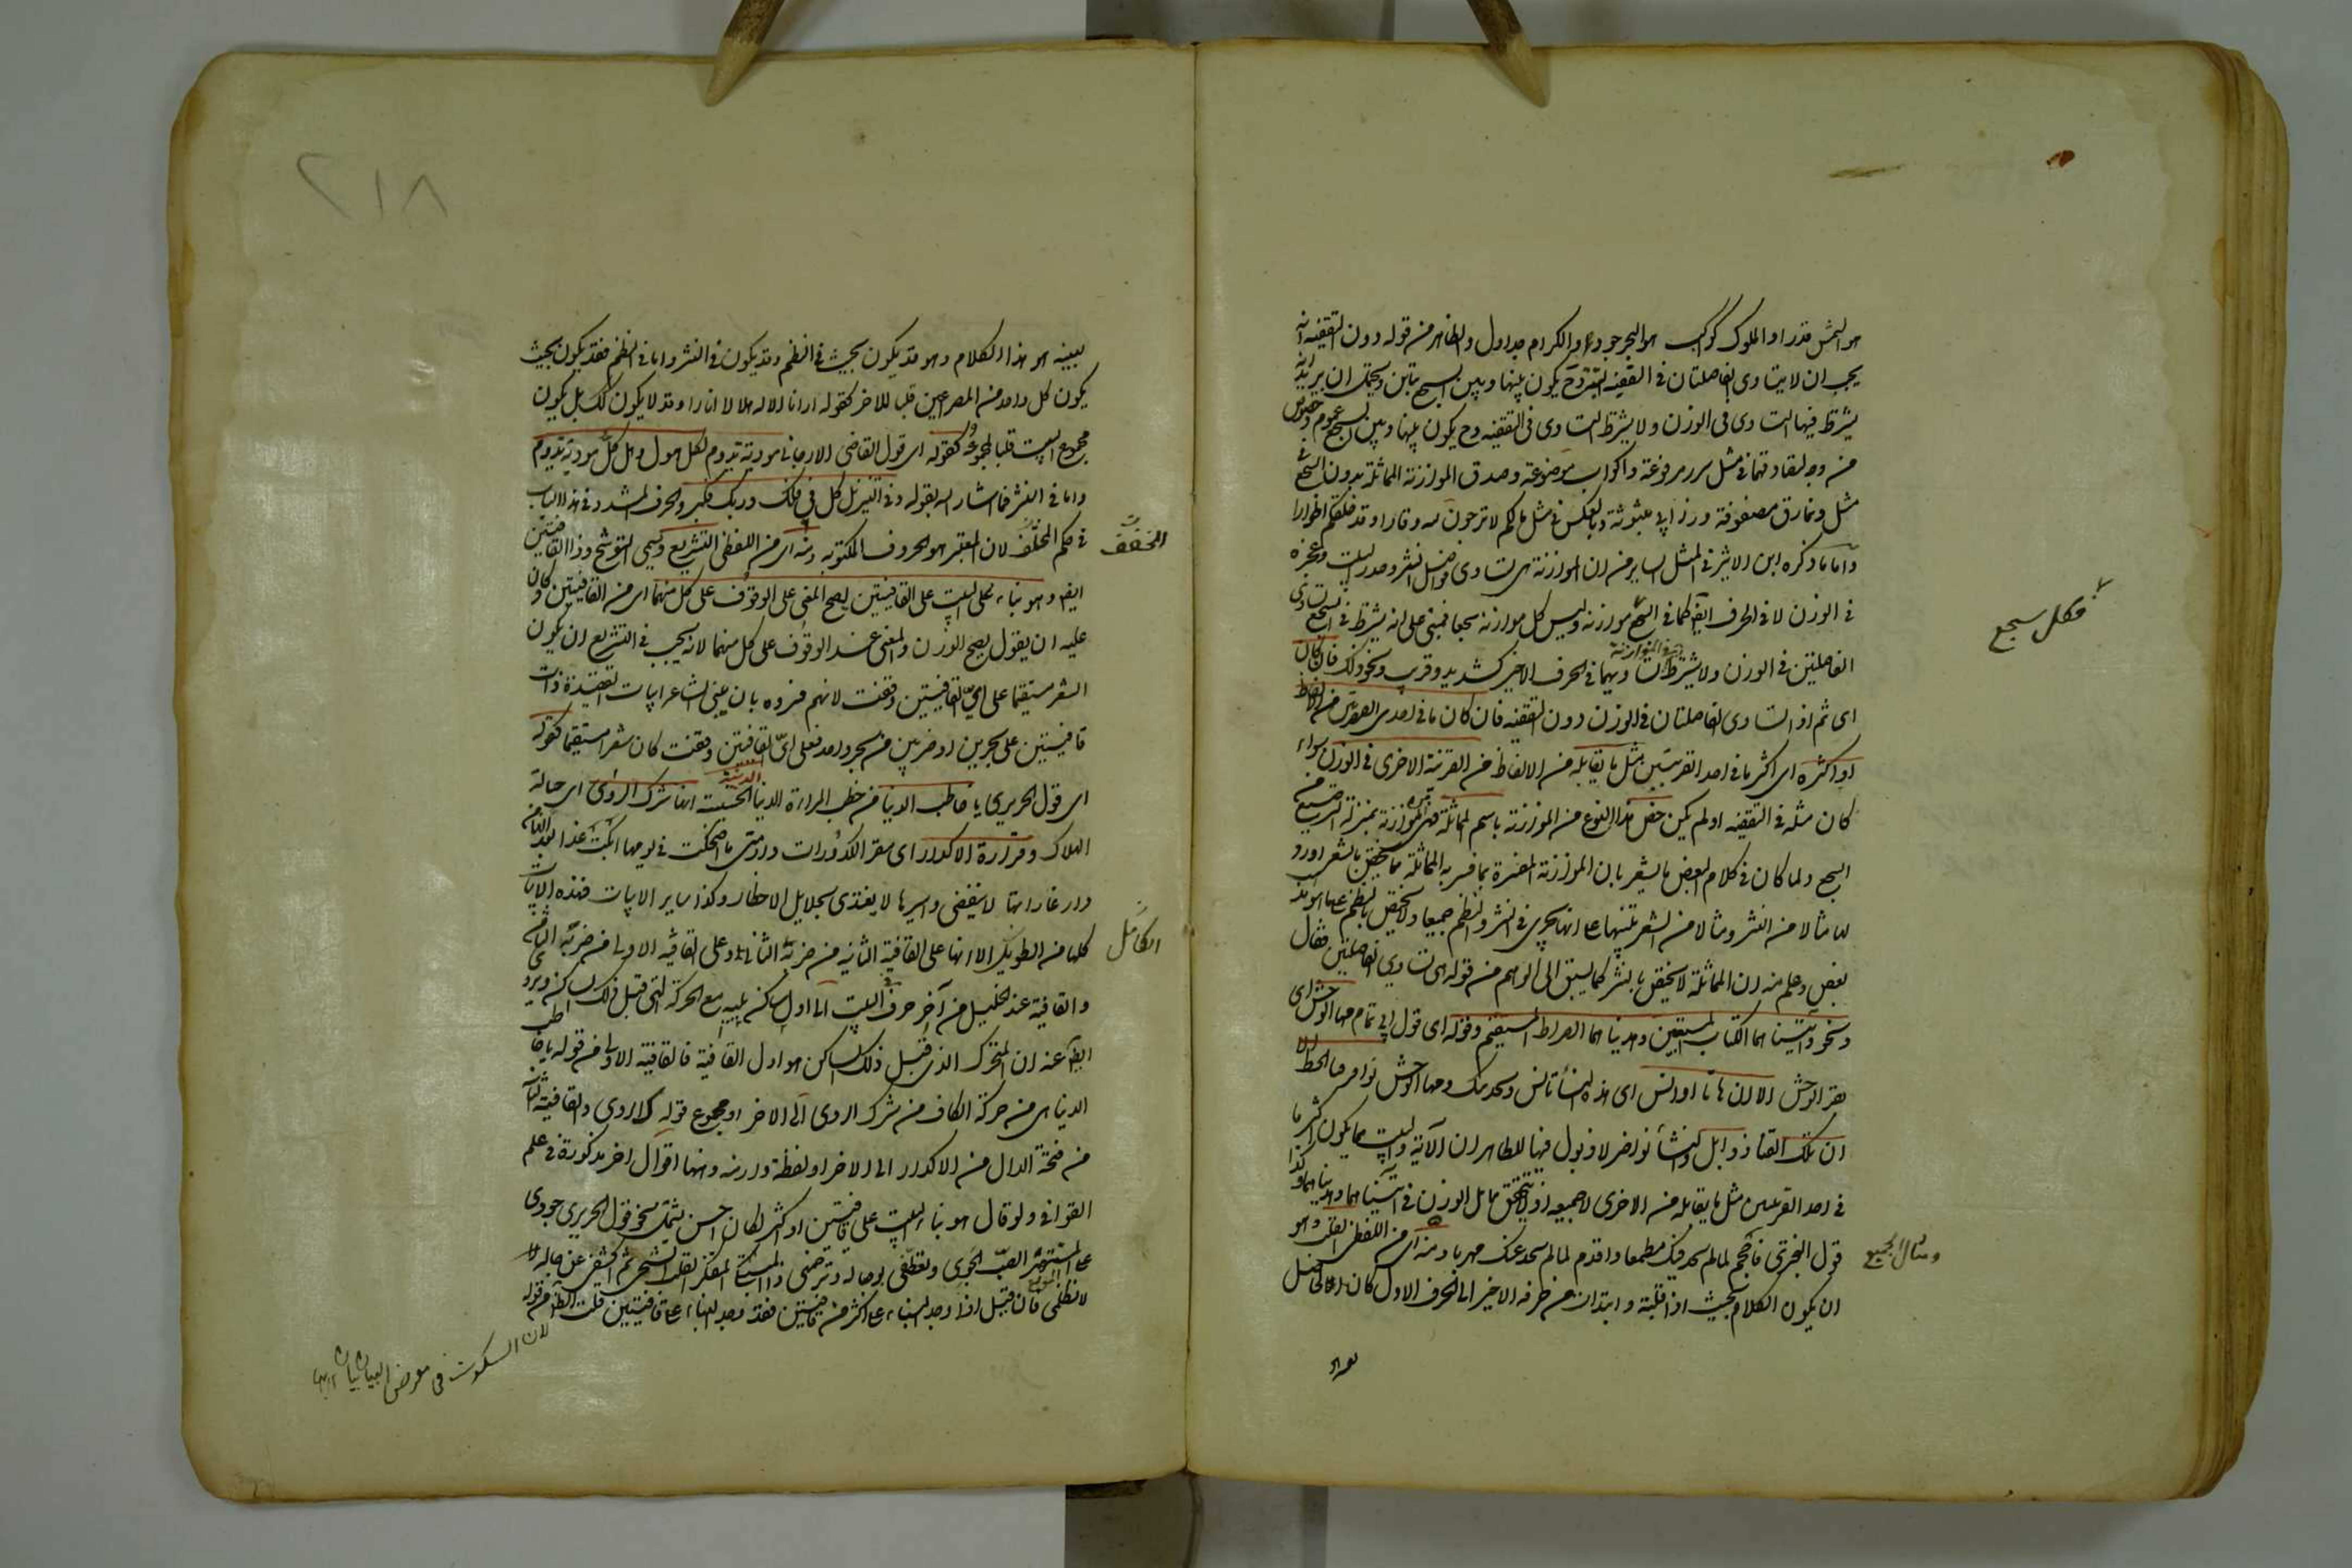 هو الشمس قدرا والملوك كواكب هو البحر جودا والكرام جداول والظاهر من قوله دون التقفية انه
يجب ان لا يتساوى الفاصلتان في التقفية البتة وح يكون بينها وبين السجع تباين ويحتمل ان يريد انه
يشترط فيها التساوى فى الوزن ولا يشترط التساوى فى التقفية وح يكون بينها وبين السجع عموم وخصوص
من وجه لتصادقهما في مثل سرر مرفوعة واكواب موضوعة وصدق الموازنة بدون السجع في
مثل ونمارق مصفوفة وزرابي مبثوثة وبالعكس في مثل ما لكم لا ترجون لله وقارا وقد خلقكم اطوارا
واما ما ذكره ابن الاثير في المثل الساير من ان الموازنة هى تساوى فواصل النثر وصدر البيت وعجزه
في الوزن لا في الحرف ايضا كما في السجع موازنة وليس كل موازنة سجعا فمبنى على انه يشترط في السجع تساوى
فكل سجع
الفاصلتين في الوزن ولا يشترط في الموازنة تساويهما في الحرف الاخير كشديد وقريب ونحو ذلك فان كان
اى ثم اذا تساوى الفاصلتان في الوزن دون التقفية فان كان ما في احدى القرينتين من الالفاظ
او اكثره اى اكثر ما في احدى القرينتين مثل ما يقابله من الالفاظ من القرينة الاخرى في الوزن سواء
كان مثله في التقفية او لم يكن خص هذا النوع من الموازنة باسم المماثلة فهى من الموازنة بمنزلة الترصيع من
السجع ولما كان في كلام البعض ما يشعر بان الموازنة المفسرة بما فسر به المماثلة مما يختص بالشعر اورد
لها مثالا من النثر ومثالا من الشعر تنبيها على انها تجرى في النثر والنظم جميعا ولا تختص بالنظم على ما هو عند
بعض وعلم منه ان المماثلة لا تختص بالنثر كما يسبق الى الوهم من قوله هى تساوى الفاصلتين فقال
ونحو وآتيناهما الكتاب المستبين وهديناهما الصراط المستقيم وقوله اى قول ابى تمام مها الوحش اى
بقر الوحش الا ان هاتا اوانس اى هذه النساء تانس وتحدثك ومها الوحش نوافر قنا الخط الا
ان تلك القنا ذوابل والنساء نواضر لا ذبول فيها الظاهر ان الآية والبيت مما يكون اكثر ما
في احدى القرينتين مثل ما يقابله من الاخرى لا جميعه اذ لا يتحقق تماثل الوزن في آتيناهما وهديناهما وكذا
ومثال الجميع
قول البحترى فاحجم لما لم يجد فيك مطمعا واقدم لما لم يجد عنك مهربا ومنه اى من اللفظى القلب وهو
ان يكون الكلام بحيث اذا قلبته وابتدات من حرفه الاخير الى الحرف الاول كان الحاصل
٢١٨
بعينه هو هذا الكلام وهو قد يكون بحيث في النظم وقد يكون في النثر واما في النظم فقد يكون بحيث
يكون كل واحد من المصراعين قلبا للاخر كقوله ارانا الاله هلالا انارا وقد لا يكون كذلك بل يكون
مجموع البيت قلبا لمجموعه كقوله اى قول القاضى الارجانى مودته تدوم لكل هول وهل كل مودته تدوم
واما في النثر فما اشار اليه بقوله وفي التنزيل كل في فلك وربك فكبر والحرف المشدد في هذا الباب
في حكم المخفف لان المعتبر هو الحروف المكتوبة ومنه اى من اللفظى التشريع ويسمى التوشيح وذا القافيتين
المخفف
ايضا وهو بناء البيت على القافيتين يصح المعنى على الوقوف على كل منهما اى من القافيتين وكان
عليه ان يقول يصح الوزن والمعنى عند الوقوف على كل منهما لانه يجب في التشريع ان يكون
الشعر مستقيما على اى القافيتين وقفت لانهم فسروه بان يبنى الشاعر ابيات القصيدة ذات
قافيتين على بحرين او ضربين من بحر واحد فعلى اى القافيتين وقفت كان شعرا مستقيما كقوله
اى قول الحريرى يا خاطب الدنيا من خطب المراة الدنية الخسيسة انها شرك الردى اى حبالة
الهلاك وقرارة الاكدار اى مقر الكدورات دار متى ما اضحكت في يومها ابكت غدا بعدا لها من
دار غاراتها لا ينقضى واسيرها لا يفتدى بجلايل الاخطار وكذا ساير الابيات فهذه الابيات
كلها من الطويل الا انها على القافية الثانية من ضربه الثانى وعلى القافية الاولى من ضربه الثامن
الكامل
والقافية عند الخليل من آخر حرف في البيت الى اول ساكن يليه مع الحركة التى قبل ذلك الساكن ويروى
ايضا عنه ان المتحرك الذى قبل ذلك الساكن هو اول القافية فالقافية الاولى من قوله يا خاطب
الدنيا هى من حركة الكاف من شرك الردى الى الاخر او مجموع قوله ك الردى والقافية الثانية
من فتحة الدال من الاكدار الى الاخر او لفظة دار منه ومنها اقوال اخر مذكورة في علم
القوافى ولو قال هو بناء البيت على قافيتين او اكثر لكان احسن ليشمل نحو قول الحريرى جودى
على المستهتر الصب الجوى وتعطفى بوصاله وترحمى ذا المبتلى المتفكر القلب الشجى ثم اكشفى عن حاله لا
لا تظلمى فان قيل اذا وجد البناء على اكثر من قافيتين فقد وجد البناء على قافيتين قلت الظاهر من قوله
لان السكوت في معرض البيان بيان